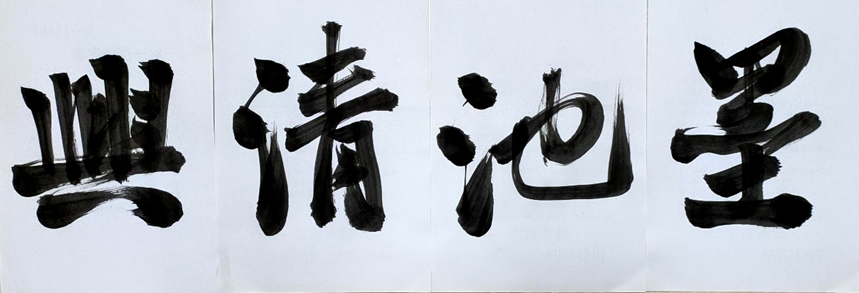 墨池清興